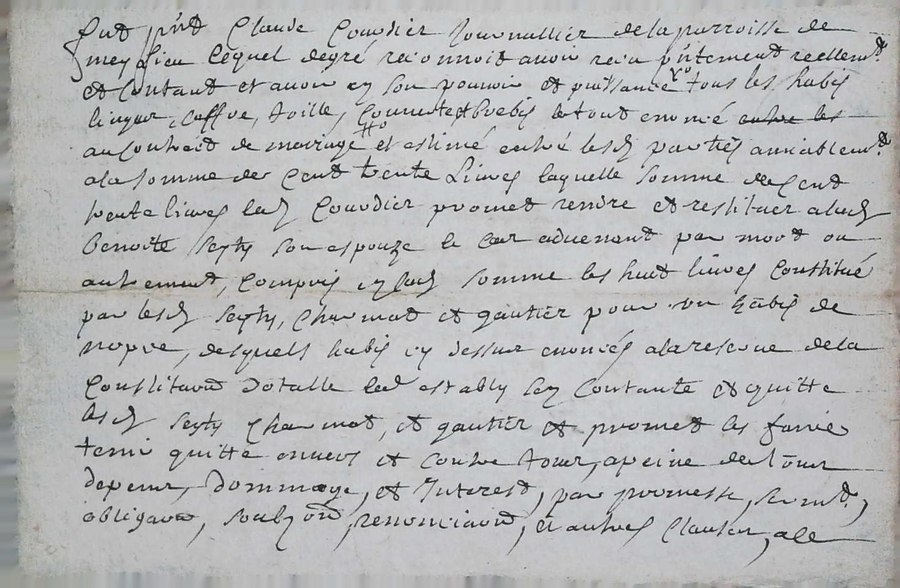 fut p̃nt Claude Courdier Journallier de la parroisse de
meylieu lequel degré reconnoit avoir receu p̃ntement reellemt
et Contant et avoir en son pouvoir et puissance tous les habis
linger, Coffre, toille, et brebis le tout enoncé
au Contrait de mariage et estimé entre lesd parties amiablemt
a la somme de Cent trente Livres laquelle somme de Cent
trente livres led Courdier promet rendre et restituer alad
benoite seyty son espouze le cas advenant par mort ou
autrement, Compris en lad somme les huit livres Constitué
par lesd seyty, Charmat et gautier pour un habis de
nopce, desquels habis cy dessus enoncés ala reserve de la
Constitaōn dotalle led estably sen Contante et quitte
lesd seyty Charmat, et gautier et promet les faire
tenir quitte envers et contre tous, apeine de tous
depens, Dommage, et Interest, par promesse, sermt,
obligaōn, soubzōn, renonciaōn, et autres Clauses, ale